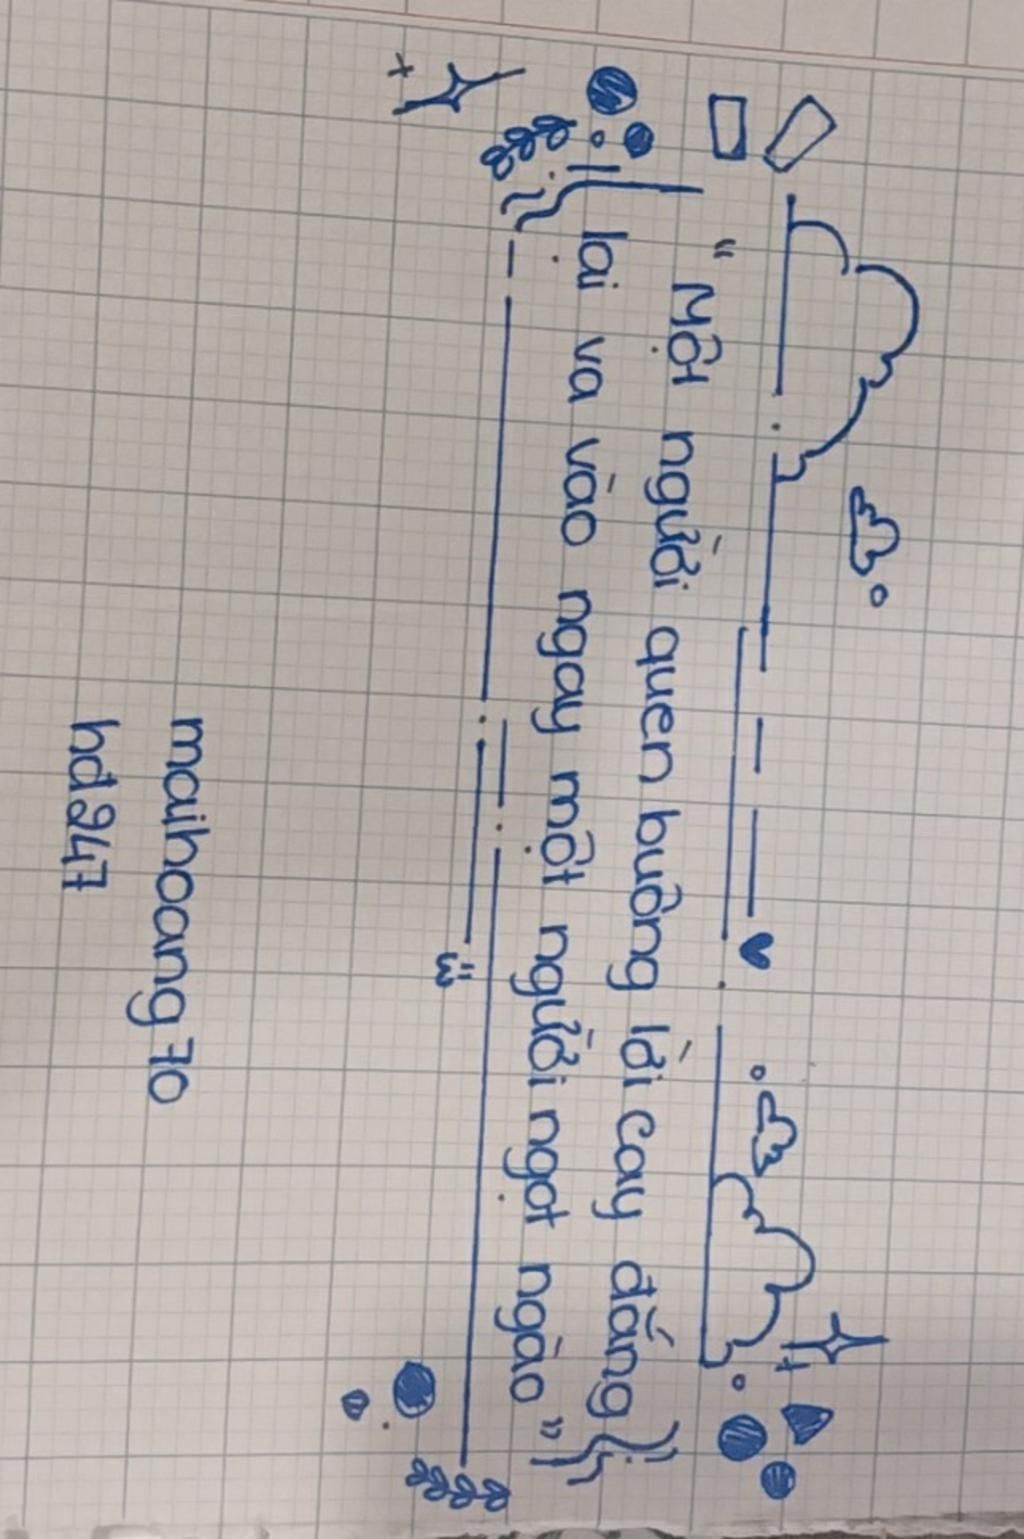 “ Một người quen buông lời cay đắng
lại va vào ngay một người ngọt ngào ”
maihoang 70
hd247